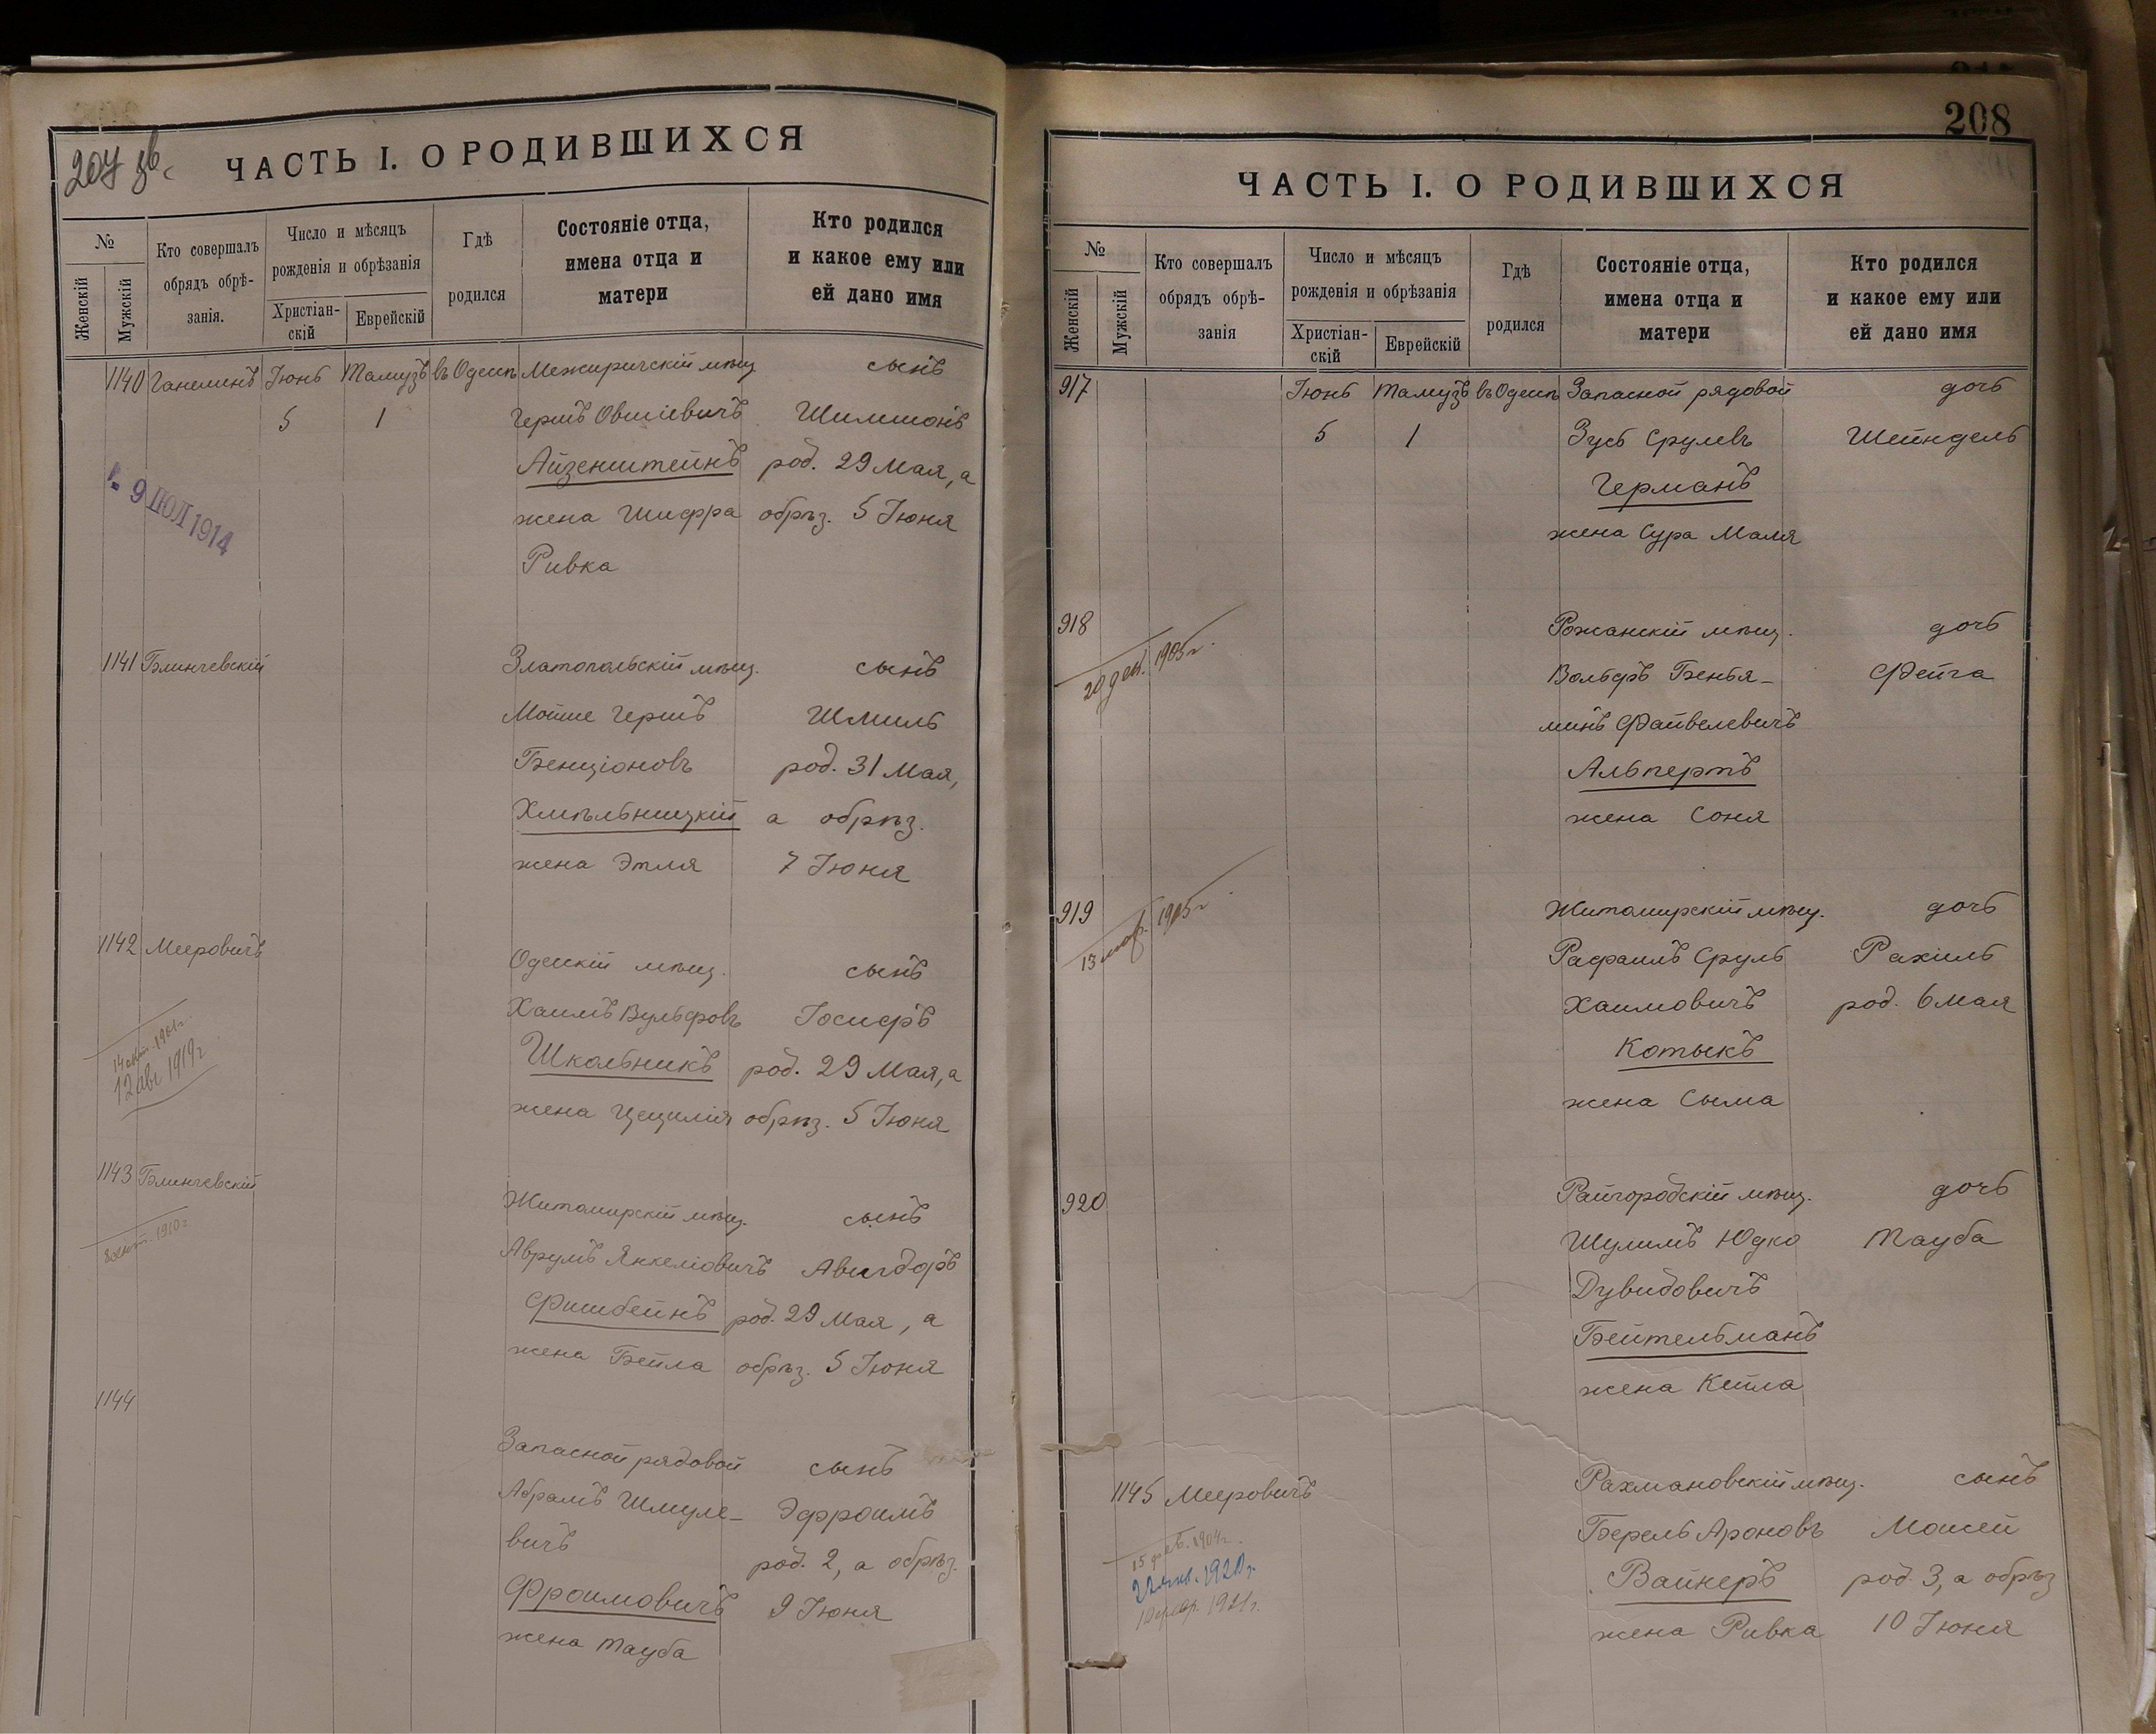 207 зв.
ЧАСТЬ I. О РОДИВШИХСЯ
№
Женскій
Мужскій
Кто совершалъ
обрядъ обрѣ-
занія.
Число и мѣсяцъ
рожденія и обрѣзанія
Христіан-
скій
Еврейскій
Гдѣ
родился
Состояніе отца,
имена отца и
матери
Кто родился
и какое ему или
ей дано имя
1140 Ганелинъ Іюнь Тамузъ въ Одессѣ Межиричскій мѣщ. сынъ
5 1 Гершъ Овшіевичъ Шимшонъ
Айзенштейнъ род. 29 Мая, а
жена Шифра обрѣз. 5 Іюня
Ривка
9 ІЮЛ 1914
1141 Блинчевскій Златопольскій мѣщ. сынъ
Мойше Гершъ Шмиль
Бенціоновъ род. 31 Мая,
Хмѣльницкій а обрѣз.
жена Этля 7 Іюня
1142 Мееровичъ Одесскій мѣщ. сынъ
Хаимъ Вульфовъ Іосифъ
Школьникъ род. 29 Мая, а
жена Цецилія обрѣз. 5 Іюня
12 авг 1919 г
1143 Блинчевскій Житомирскій мѣщ. сынъ
Аврумъ Янкеліовичъ Авигдоръ
Фишбейнъ род. 29 Мая, а
жена Бейла обрѣз. 5 Іюня
1910 г
1144 Запасной рядовой сынъ
Абрамъ Шмуле- Эфроимъ
вичъ род. 2, а обрѣз.
Фроимовичъ 9 Іюня
жена Тауба
208
ЧАСТЬ I. О РОДИВШИХСЯ
№
Женскій
Мужскій
Кто совершалъ
обрядъ обрѣ-
занія
Число и мѣсяцъ
рожденія и обрѣзанія
Христіан-
скій
Еврейскій
Гдѣ
родился
Состояніе отца,
имена отца и
матери
Кто родился
и какое ему или
ей дано имя
917 Іюнь Тамузъ въ Одессѣ Запасной рядовой дочь
5 1 Зусь Срулевъ Шейндель
Германъ
жена Сура Маля
918 Рожанскій мѣщ. дочь
20 дек. 1905 г.
Вольфъ Бенья- Фейга
минъ Файвелевичъ
Альпертъ
жена Соня
919 Житомирскій мѣщ. дочь
13 мар. 1915 г
Рафаилъ Сруль Рахиль
Хаимовичъ род. 6 мая
Котыкъ
жена Сыма
920 Райгородскій мѣщ. дочь
Шулимъ Юдко Тауба
Дувидовичъ
Бейтельманъ
жена Кейла
1145 Мееровичъ Рахмановскій мѣщ. сынъ
Берель Ароновъ Моисей
Вайнеръ род. 3, а обрѣз
жена Ривка 10 Іюня
15 фев. 1904 г.
22 янв. 1920 г.
1921 г.